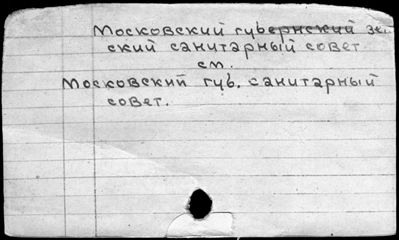 Московский губернский зем-
ский санитарный совет
см.
Московский губ. санитарный
совет.